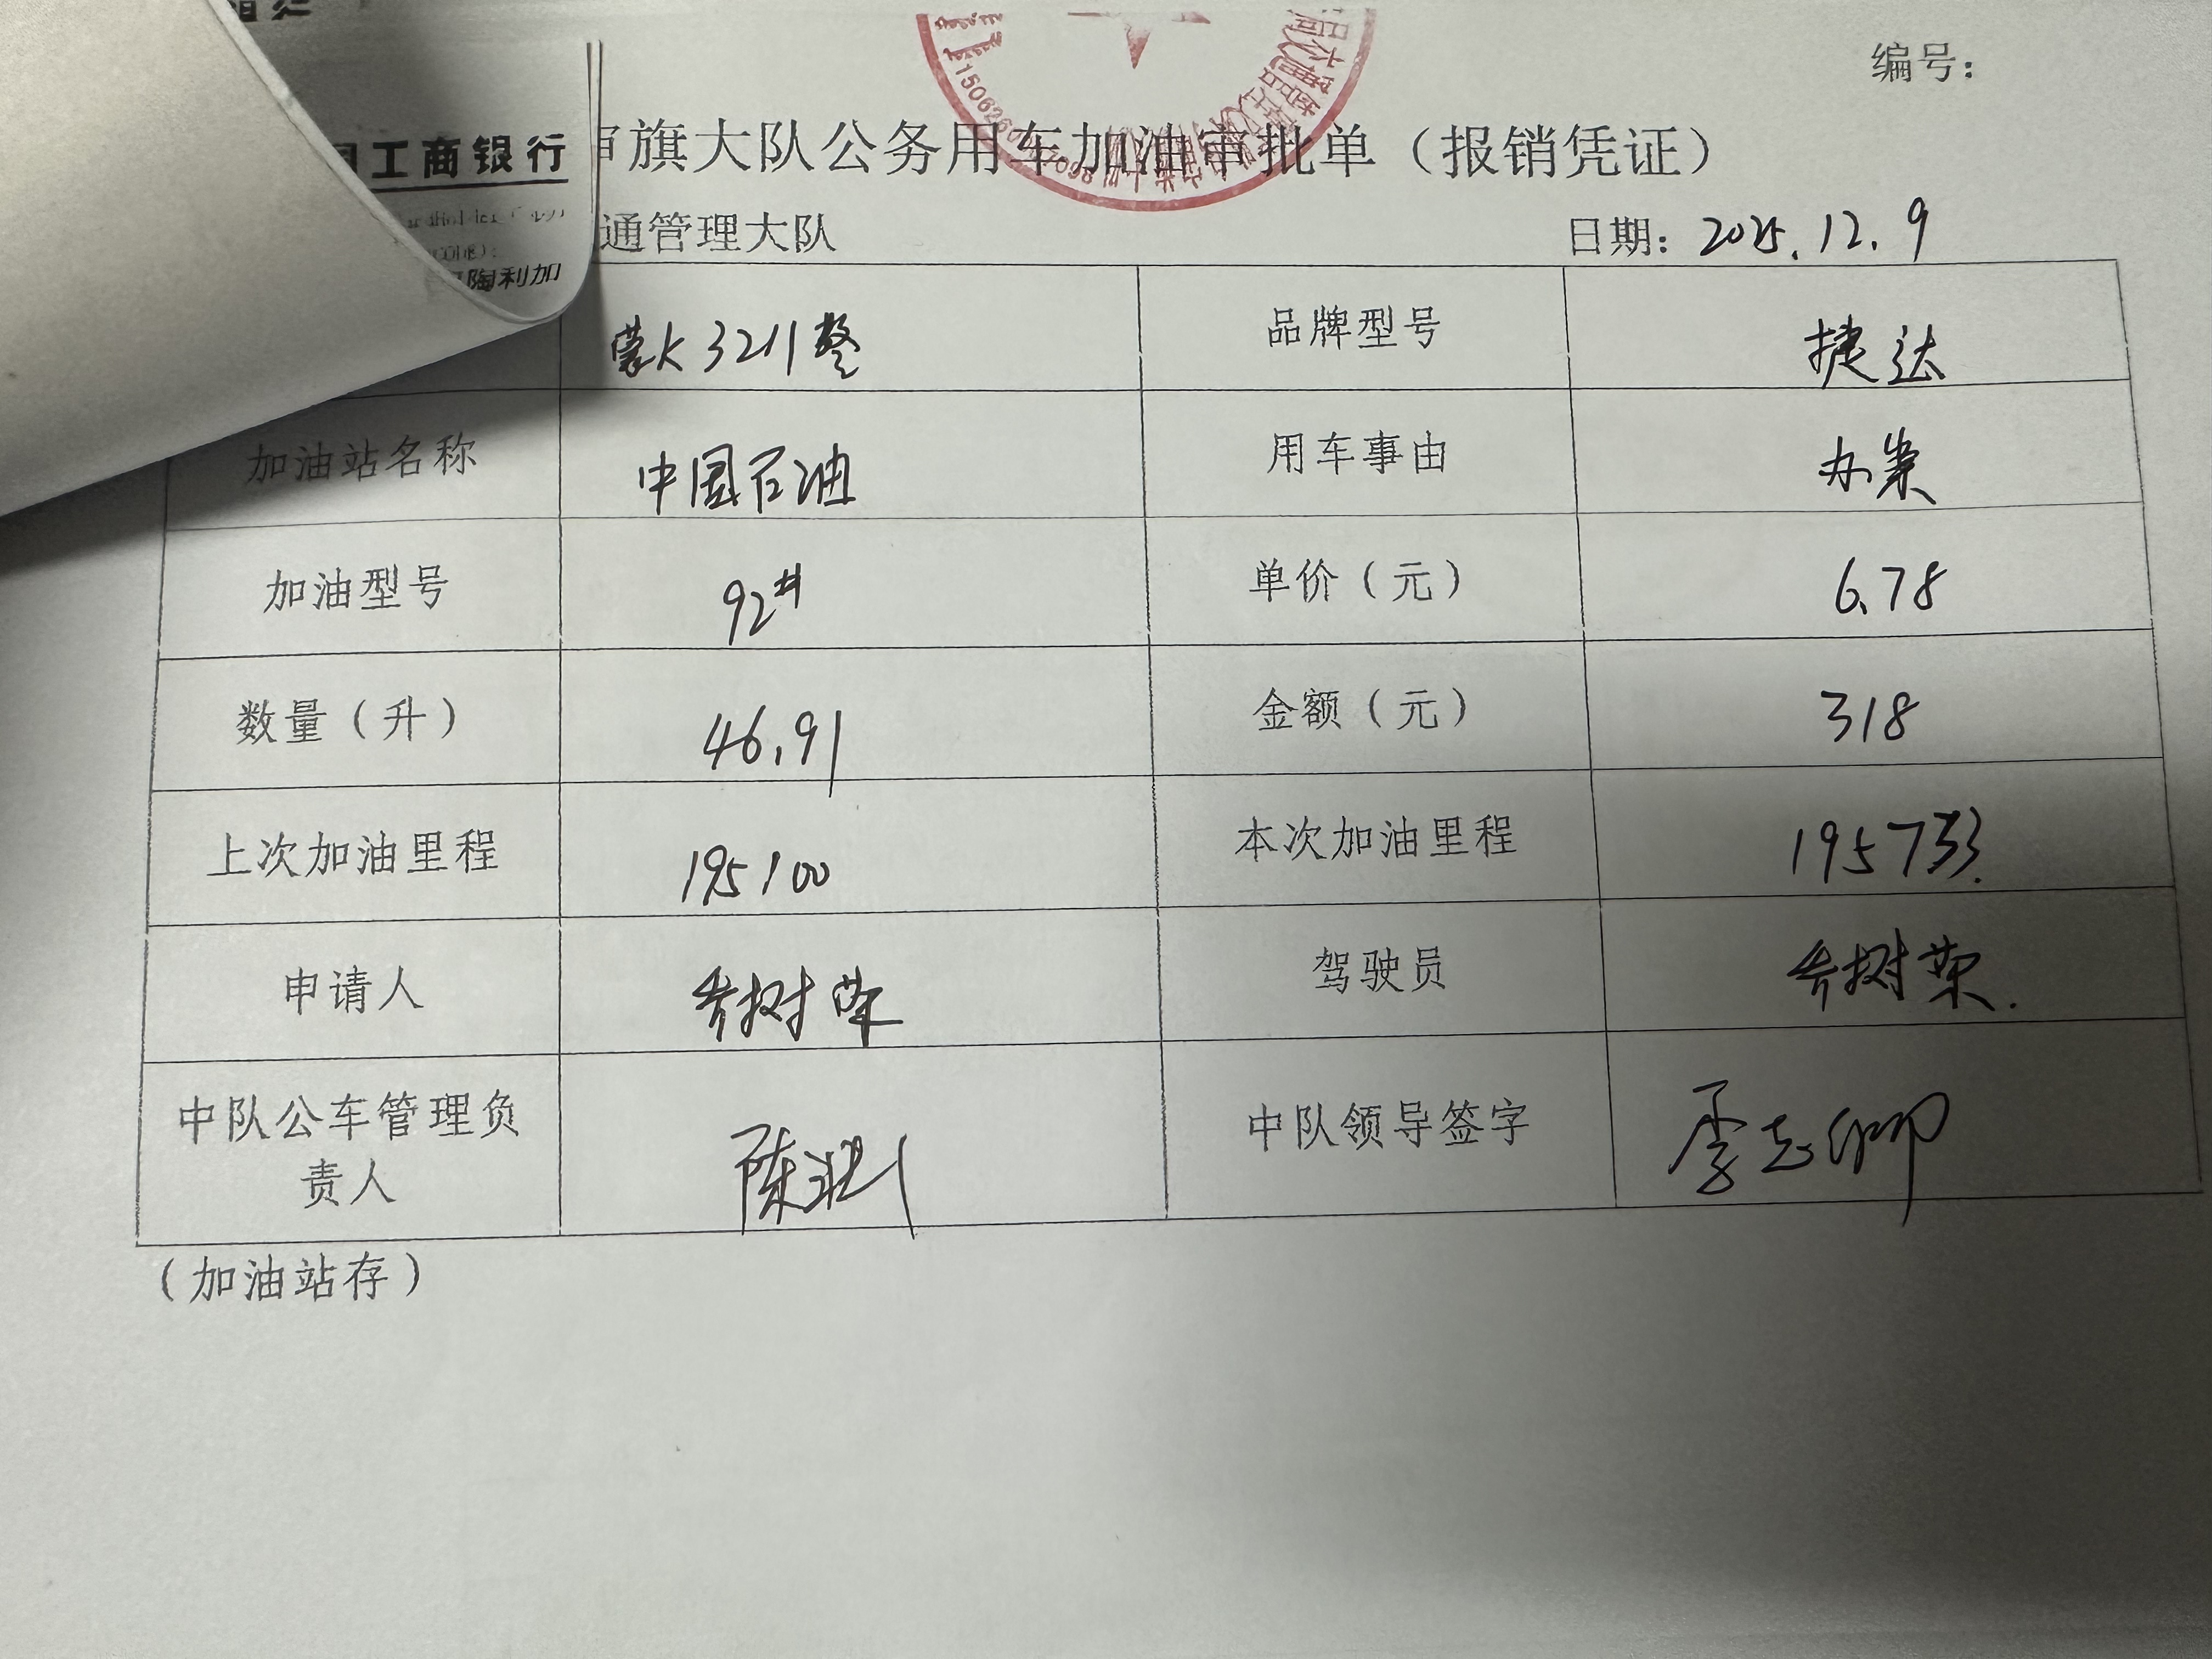 编号：
工商银行
审旗大队公务用车加油审批单（报销凭证）
通管理大队 日期：2025.12.9
陶利加
蒙K3211警 品牌型号 捷达
加油站名称 中国石油 用车事由 办案
加油型号 92# 单价（元） 6.78
数量（升） 46.91 金额（元） 318
上次加油里程 195100 本次加油里程 195733
申请人 乔树荣 驾驶员 乔树荣.
中队公车管理负
责人 陈 中队领导签字 李志卿
（加油站存）